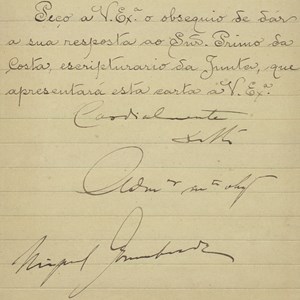 Peço a V. Ex.ª o obsequio de dár
a sua resposta ao Snr. Primo da
Costa, escripturario da Junta, que
apresentará esta carta a V. Ex.ª
Cordialmente
Adm.or m.to obg.
Miguel Bombarda